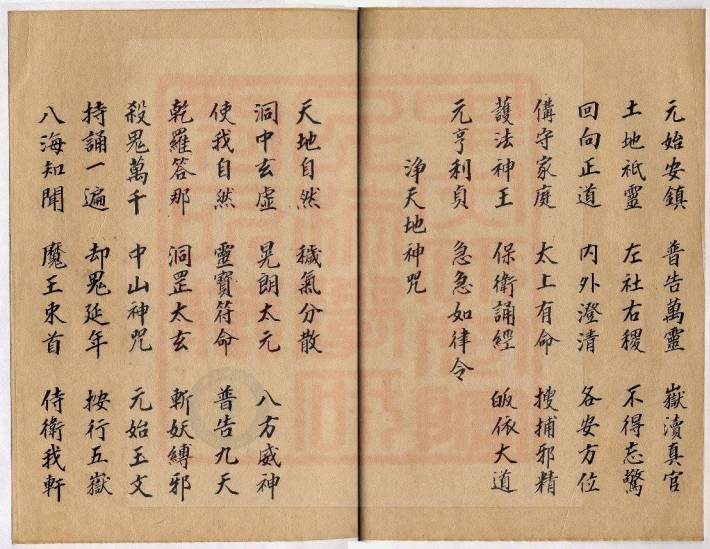 元始安鎮　普告萬靈　嶽瀆真官
土地祇靈　左社右稷　不得忘驚
回向正道　內外澄清　各安方位
俻守家庭　太上有命　搜捕邪精
護法神王　保衛誦經　皈依大道
元亨利貞　急急如律令
浄天地神咒
天地自然　穢氣分散
洞中玄虛　晃朗太元　八方威神
使我自然　靈寳符命　普告九天
乾羅答那　洞罡太玄　斬妖縛邪
殺鬼萬千　中山神咒　元始玉文
持誦一遍　却鬼延年　按行五嶽
八海知聞　魔王束首　侍衛我軒